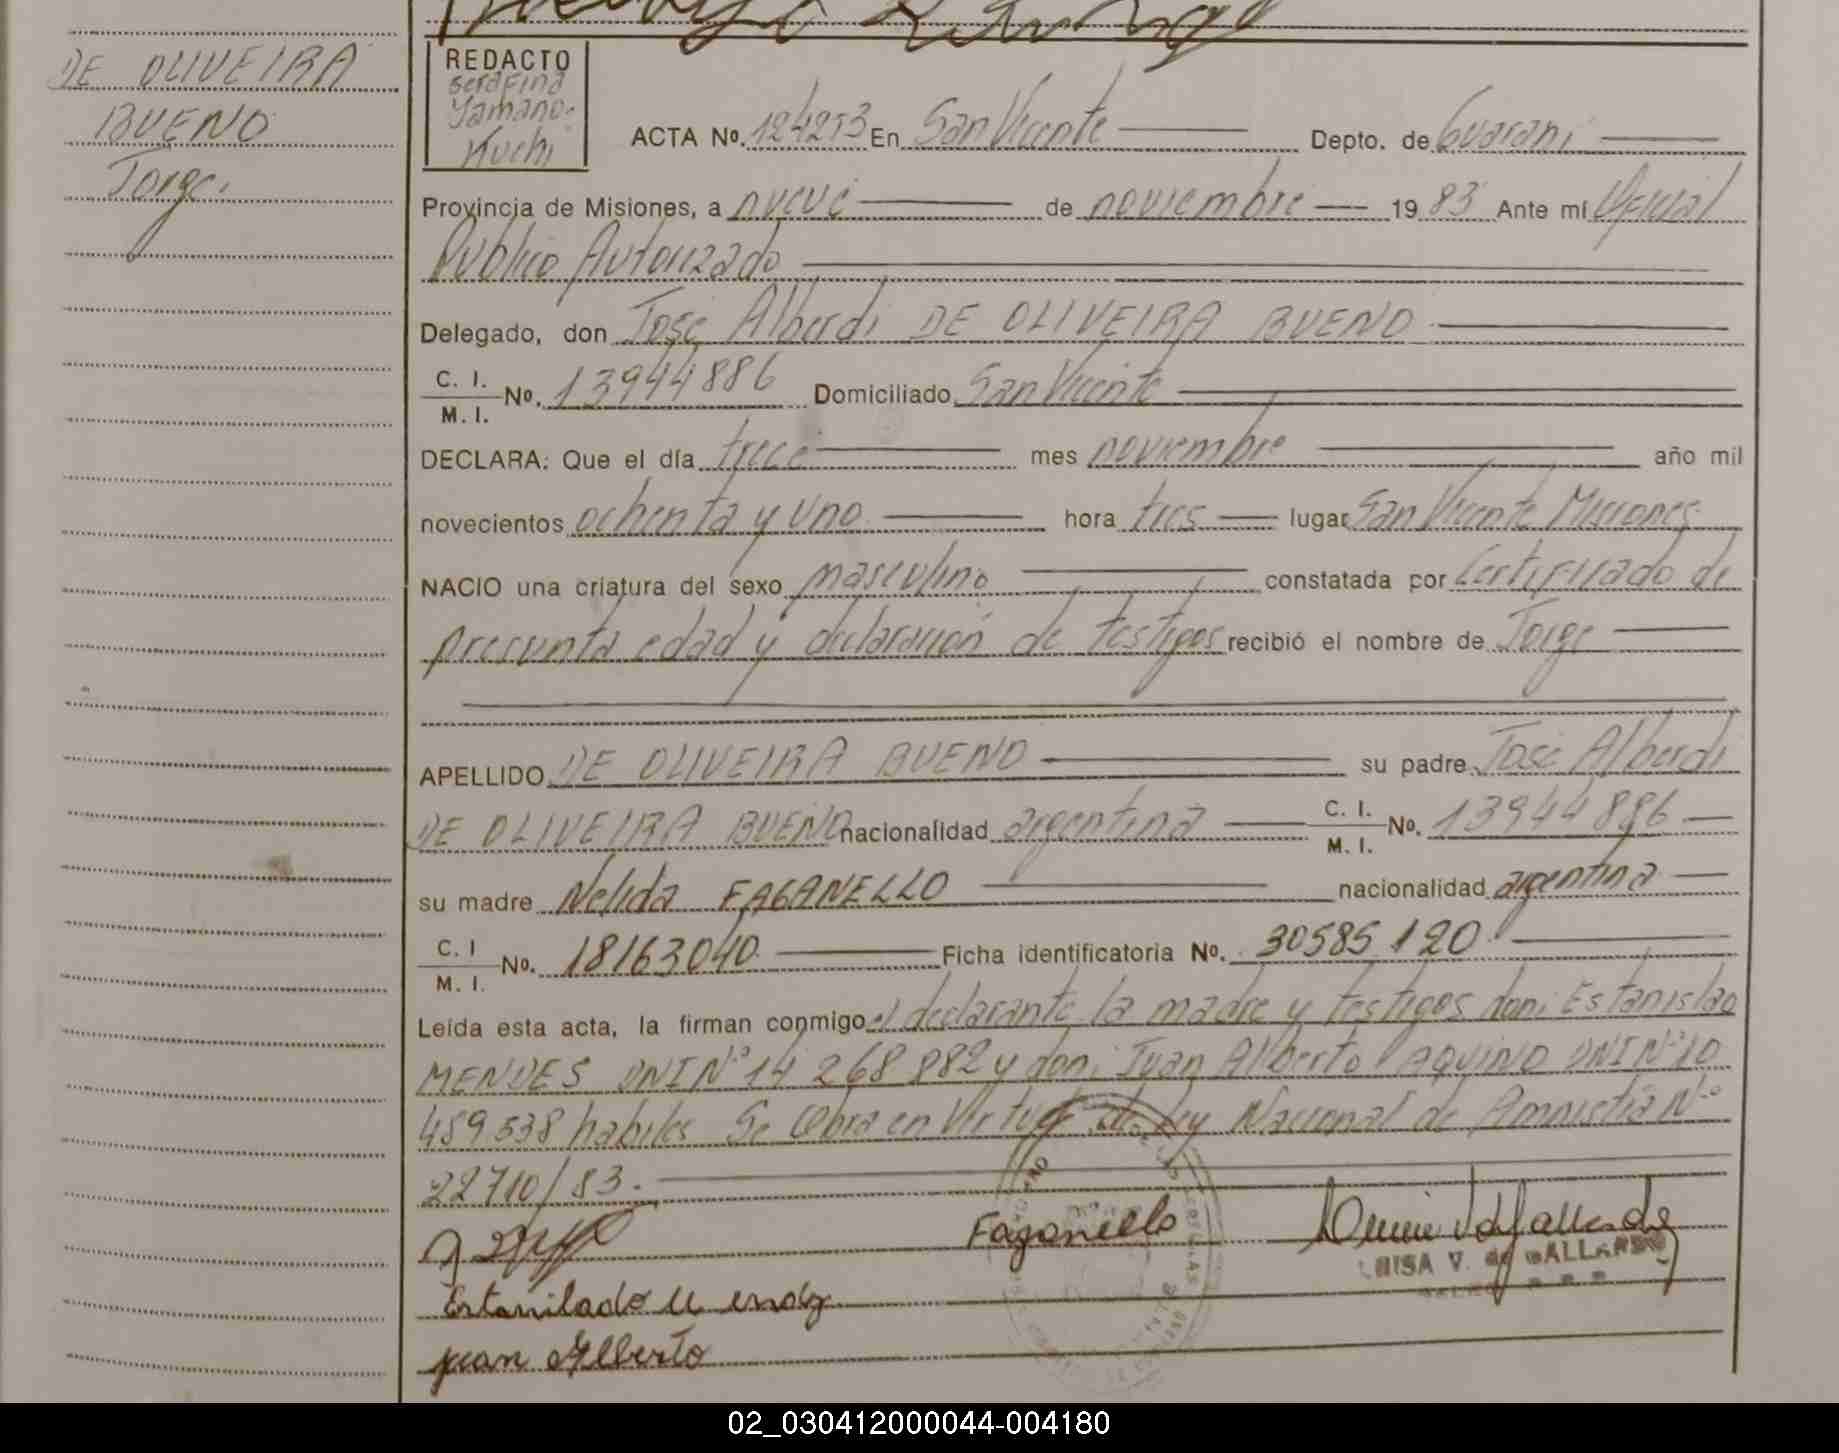 DE OLIVEIRA
BUENO
Jorge.
REDACTO
Serafina
Yamano-
Kuchi
ACTA Nº. 124253 En San Vicente Depto. de Guaraní
Provincia de Misiones, a nueve de noviembre 1983 Ante mí Oficial
Publico Autorizado
Delegado, don José Alberdi DE OLIVEIRA BUENO
C. I. M. I. Nº. 13944886 Domiciliado San Vicente
DECLARA: Que el día trece mes noviembre año mil
novecientos ochenta y uno hora tres lugar San Vicente Misiones
NACIO una criatura del sexo masculino constatada por Certificado de
presunta edad y declaración de testigos recibió el nombre de Jorge
APELLIDO DE OLIVEIRA BUENO su padre José Alberdi
DE OLIVEIRA BUENO nacionalidad argentina C. I. M. I. Nº. 13944886
su madre Nelida FAGANELLO nacionalidad argentina
C. I M. I. Nº. 18163040 Ficha identificatoria Nº. 30585120
Leída esta acta, la firman conmigo el declarante la madre y testigos don: Estanislao
MENDES DNI Nº 14 268 882 y don: Juan Alberto AQUINO DNI Nº 10
489538 habiles Se Obra en Virtud de Ley Nacional de Amnistia Nº
22710/83.
Faganello
LUISA V. de GALLARDO
Estanilado
juan Alberto
02_030412000044-004180